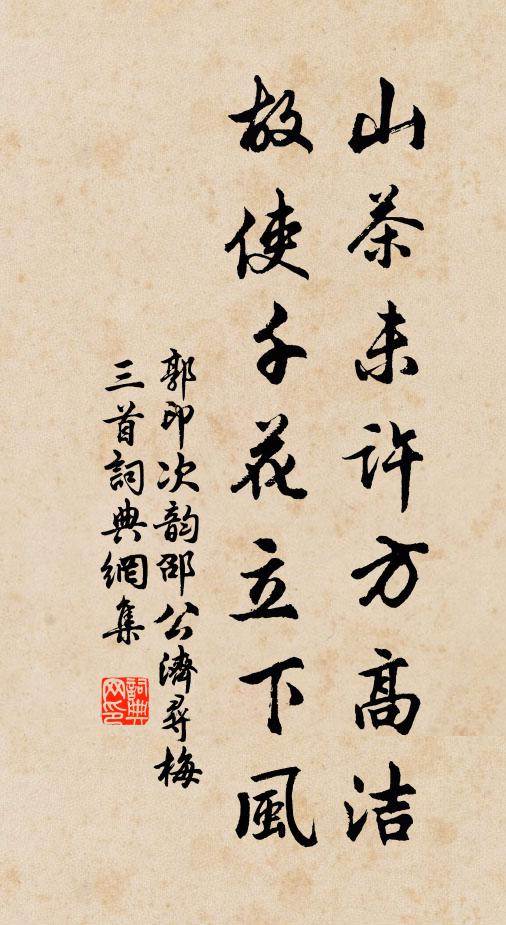 山茶未許方高洁
故使千花立下風
郭印次韵邵公濟尋梅
三首詞典網集
詞典网印